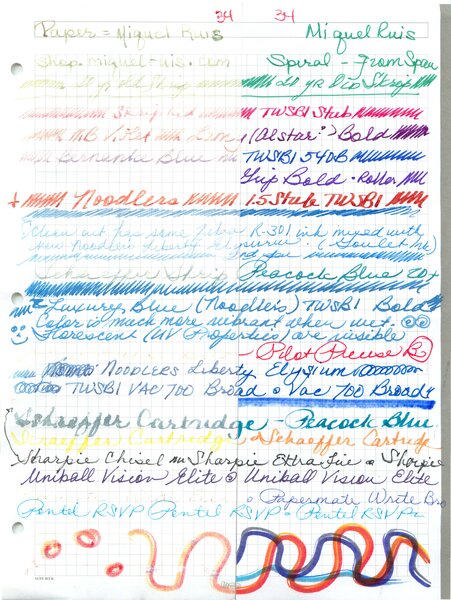 34 34
Paper = Miquel Ruis Miquel Ruis
shop.miquel-ruis.com Spiral - From Spain
20 yr Old Skrip
Skrip Red TWSBI Stub
MB Violet (Alstar) Bold
Bernanke Blue TWSBI 540B
Grip Bold - Roller
Noodlers 1.5 Stub TWSBI
Clean out has some R-301 ink mixed with
Noodlers Liberty Elysium (Goulet Ink)
Schaeffer Skrip Peacock Blue 20+
Luxury Blue (Noodlers) TWSBI Bold
Color is much more vibrant when wet.
Florescent (UV Properties) are visible
- Pilot Precise B
Noodlers Liberty Elysium
TWSBI VAC 700 Broad Vac 700 Broad
Schaeffer Cartridge - Peacock Blue
Schaeffer Cartridge Schaeffer Cartridge
Sharpie Chisel Sharpie Extra Fine Sharpie
Uniball Vision Elite Uniball Vision Elite
Papermate Write Bro
Pentel RSVP (Pentel RSVP - Pentel RSVP